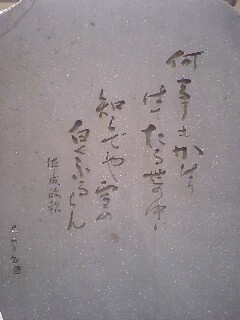 何事もかはり
はてたる世の中に
知らでや雪の
白くふるらん
成政